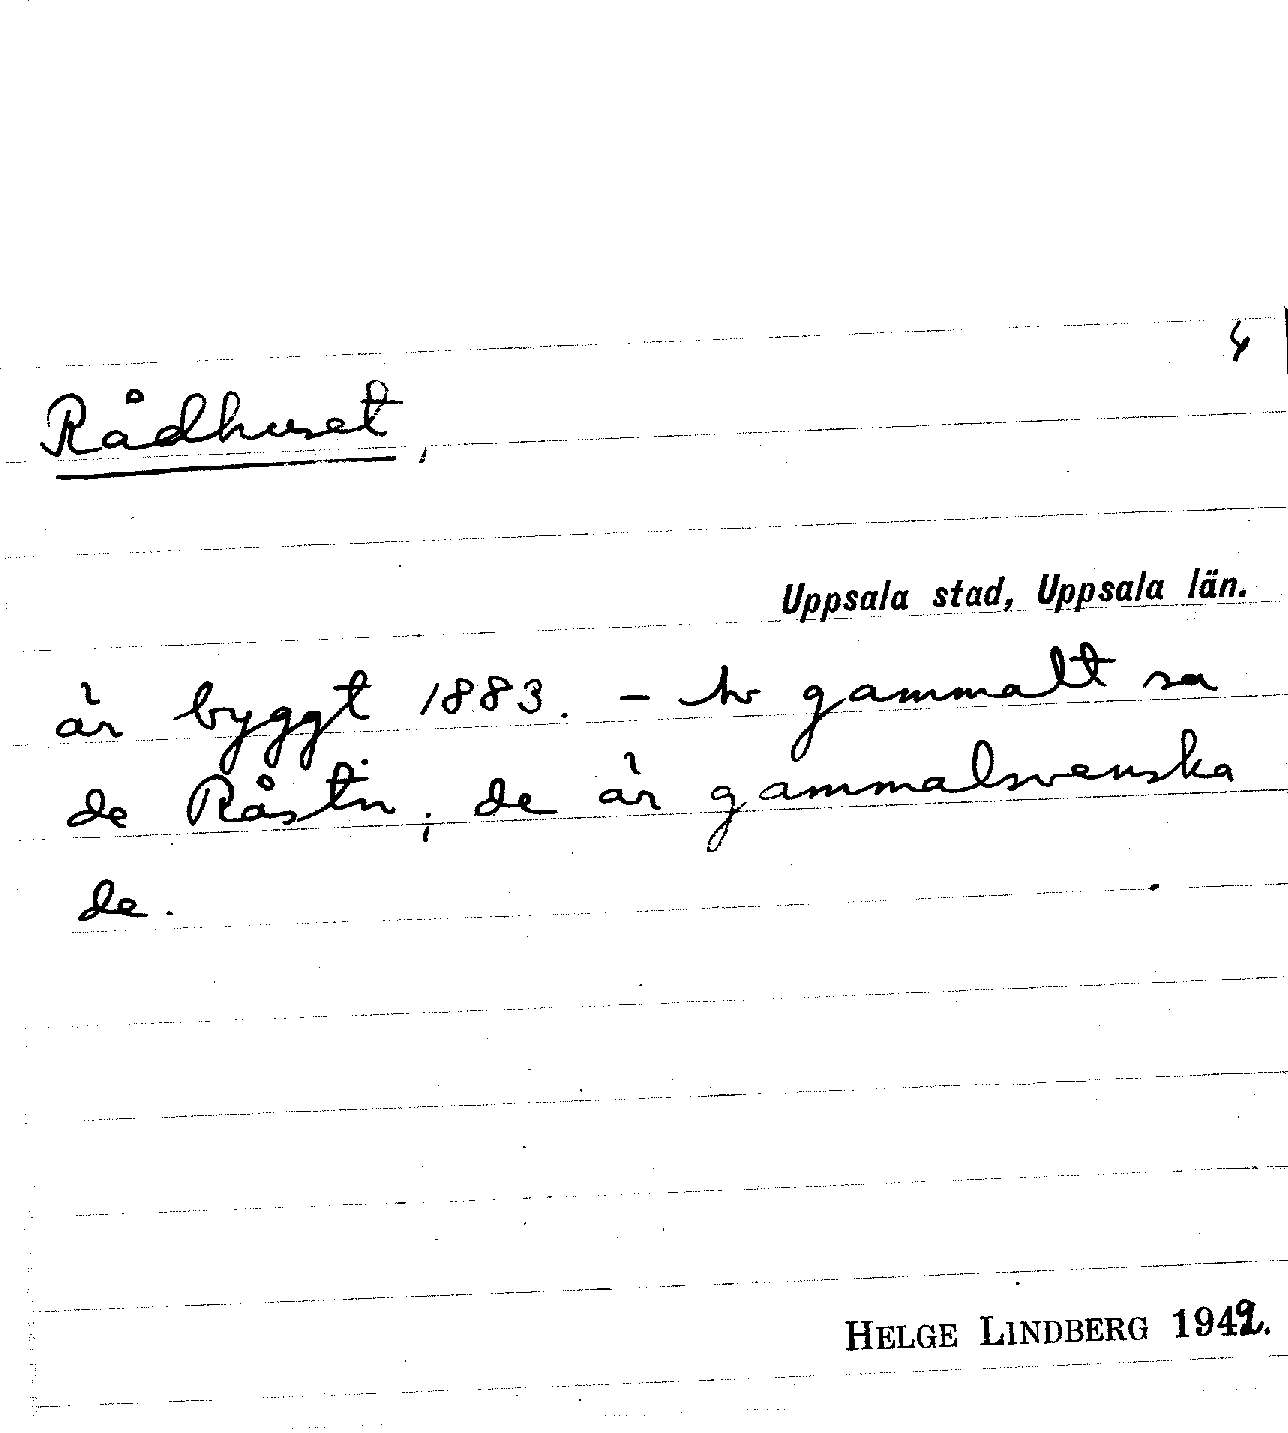 4
Rådhuset,
Uppsala stad, Uppsala län.
är byggt 1883. – Av gammalt sa
de Råstn; de är gammalsvenska
de.
HELGE LINDBERG 1942.